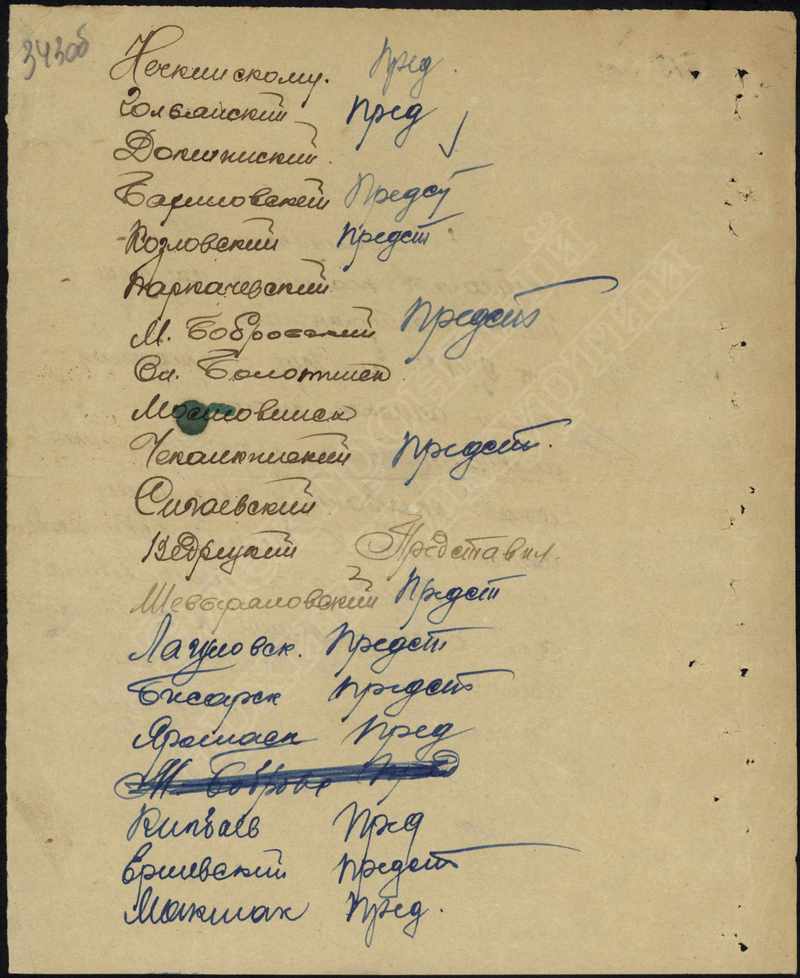 343об
Нечкинскому. Пред.
Гольянский Пред
Докшинский
Барановский Предст
Козловский Предст
Паркачевский
М. Бобровский Предст
Сл. Болотинск
Мостовинск
Чекалкинский Предст.
Сигаевский
Кедрецкий Представил.
Шевыряловский Предст
Лагуновск. Предст
Бисарск Предст
Яромаск Пред
М. Бобровс Пред
Кипваев Пред
Ершевский Предст
Макшак Пред.